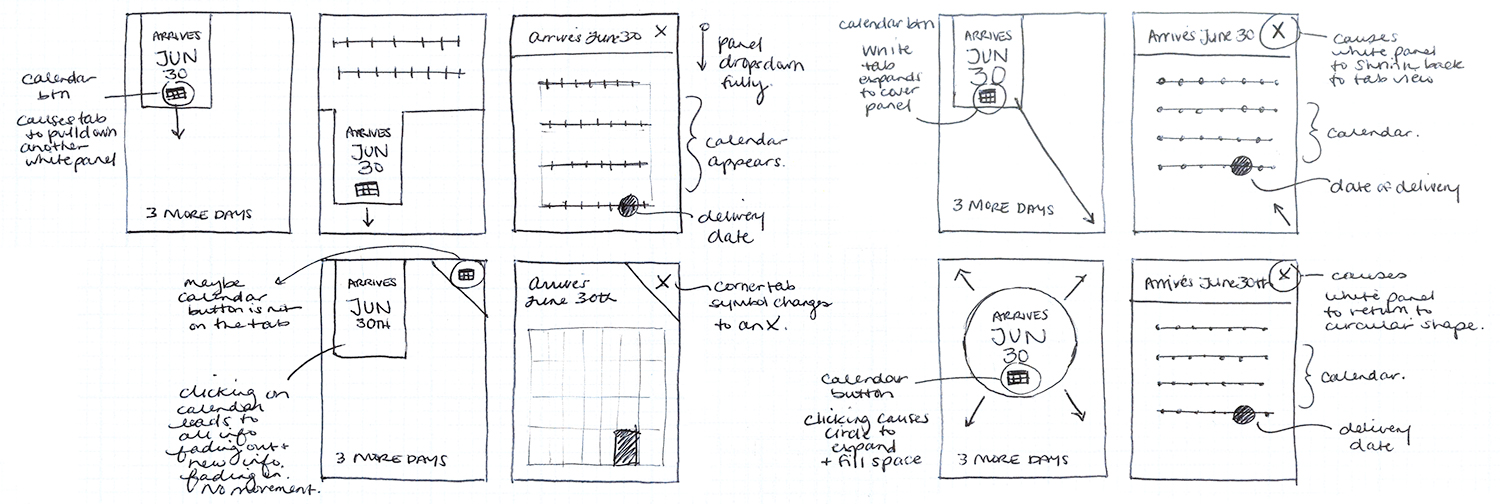 calendar
btn
causes tab
to pull down
another
white panel
ARRIVES
JUN
30
3 MORE DAYS
ARRIVES
JUN
30
Arrives June 30 X
panel
drops down
fully.
calendar
appears.
delivery
date
calendar btn
white
tab
expands
to cover
panel
ARRIVES
JUN
30
3 MORE DAYS
Arrives June 30 X
causes
white panel
to shrink back
to tab view
calendar.
date of delivery
maybe
calendar
button is not
on the tab
clicking on
calendar
leads to
all info
fading out +
new info.
fading in.
No movement.
ARRIVES
JUN
30TH
3 MORE DAYS
Arrives
June 30th
X
corner tab
symbol changes
to an X.
calendar
button
clicking causes
circle to
expand
+ fill space
ARRIVES
JUN
30
3 MORE DAYS
Arrives June 30th X
causes
white panel
to return to
circular shape.
calendar.
delivery
date